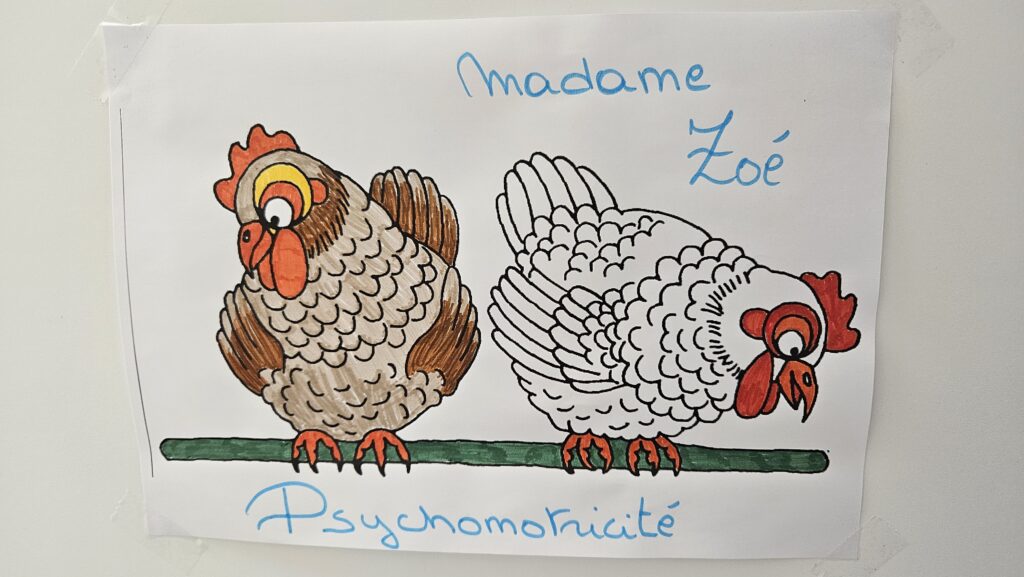 Madame
Zoé
Psychomotricité